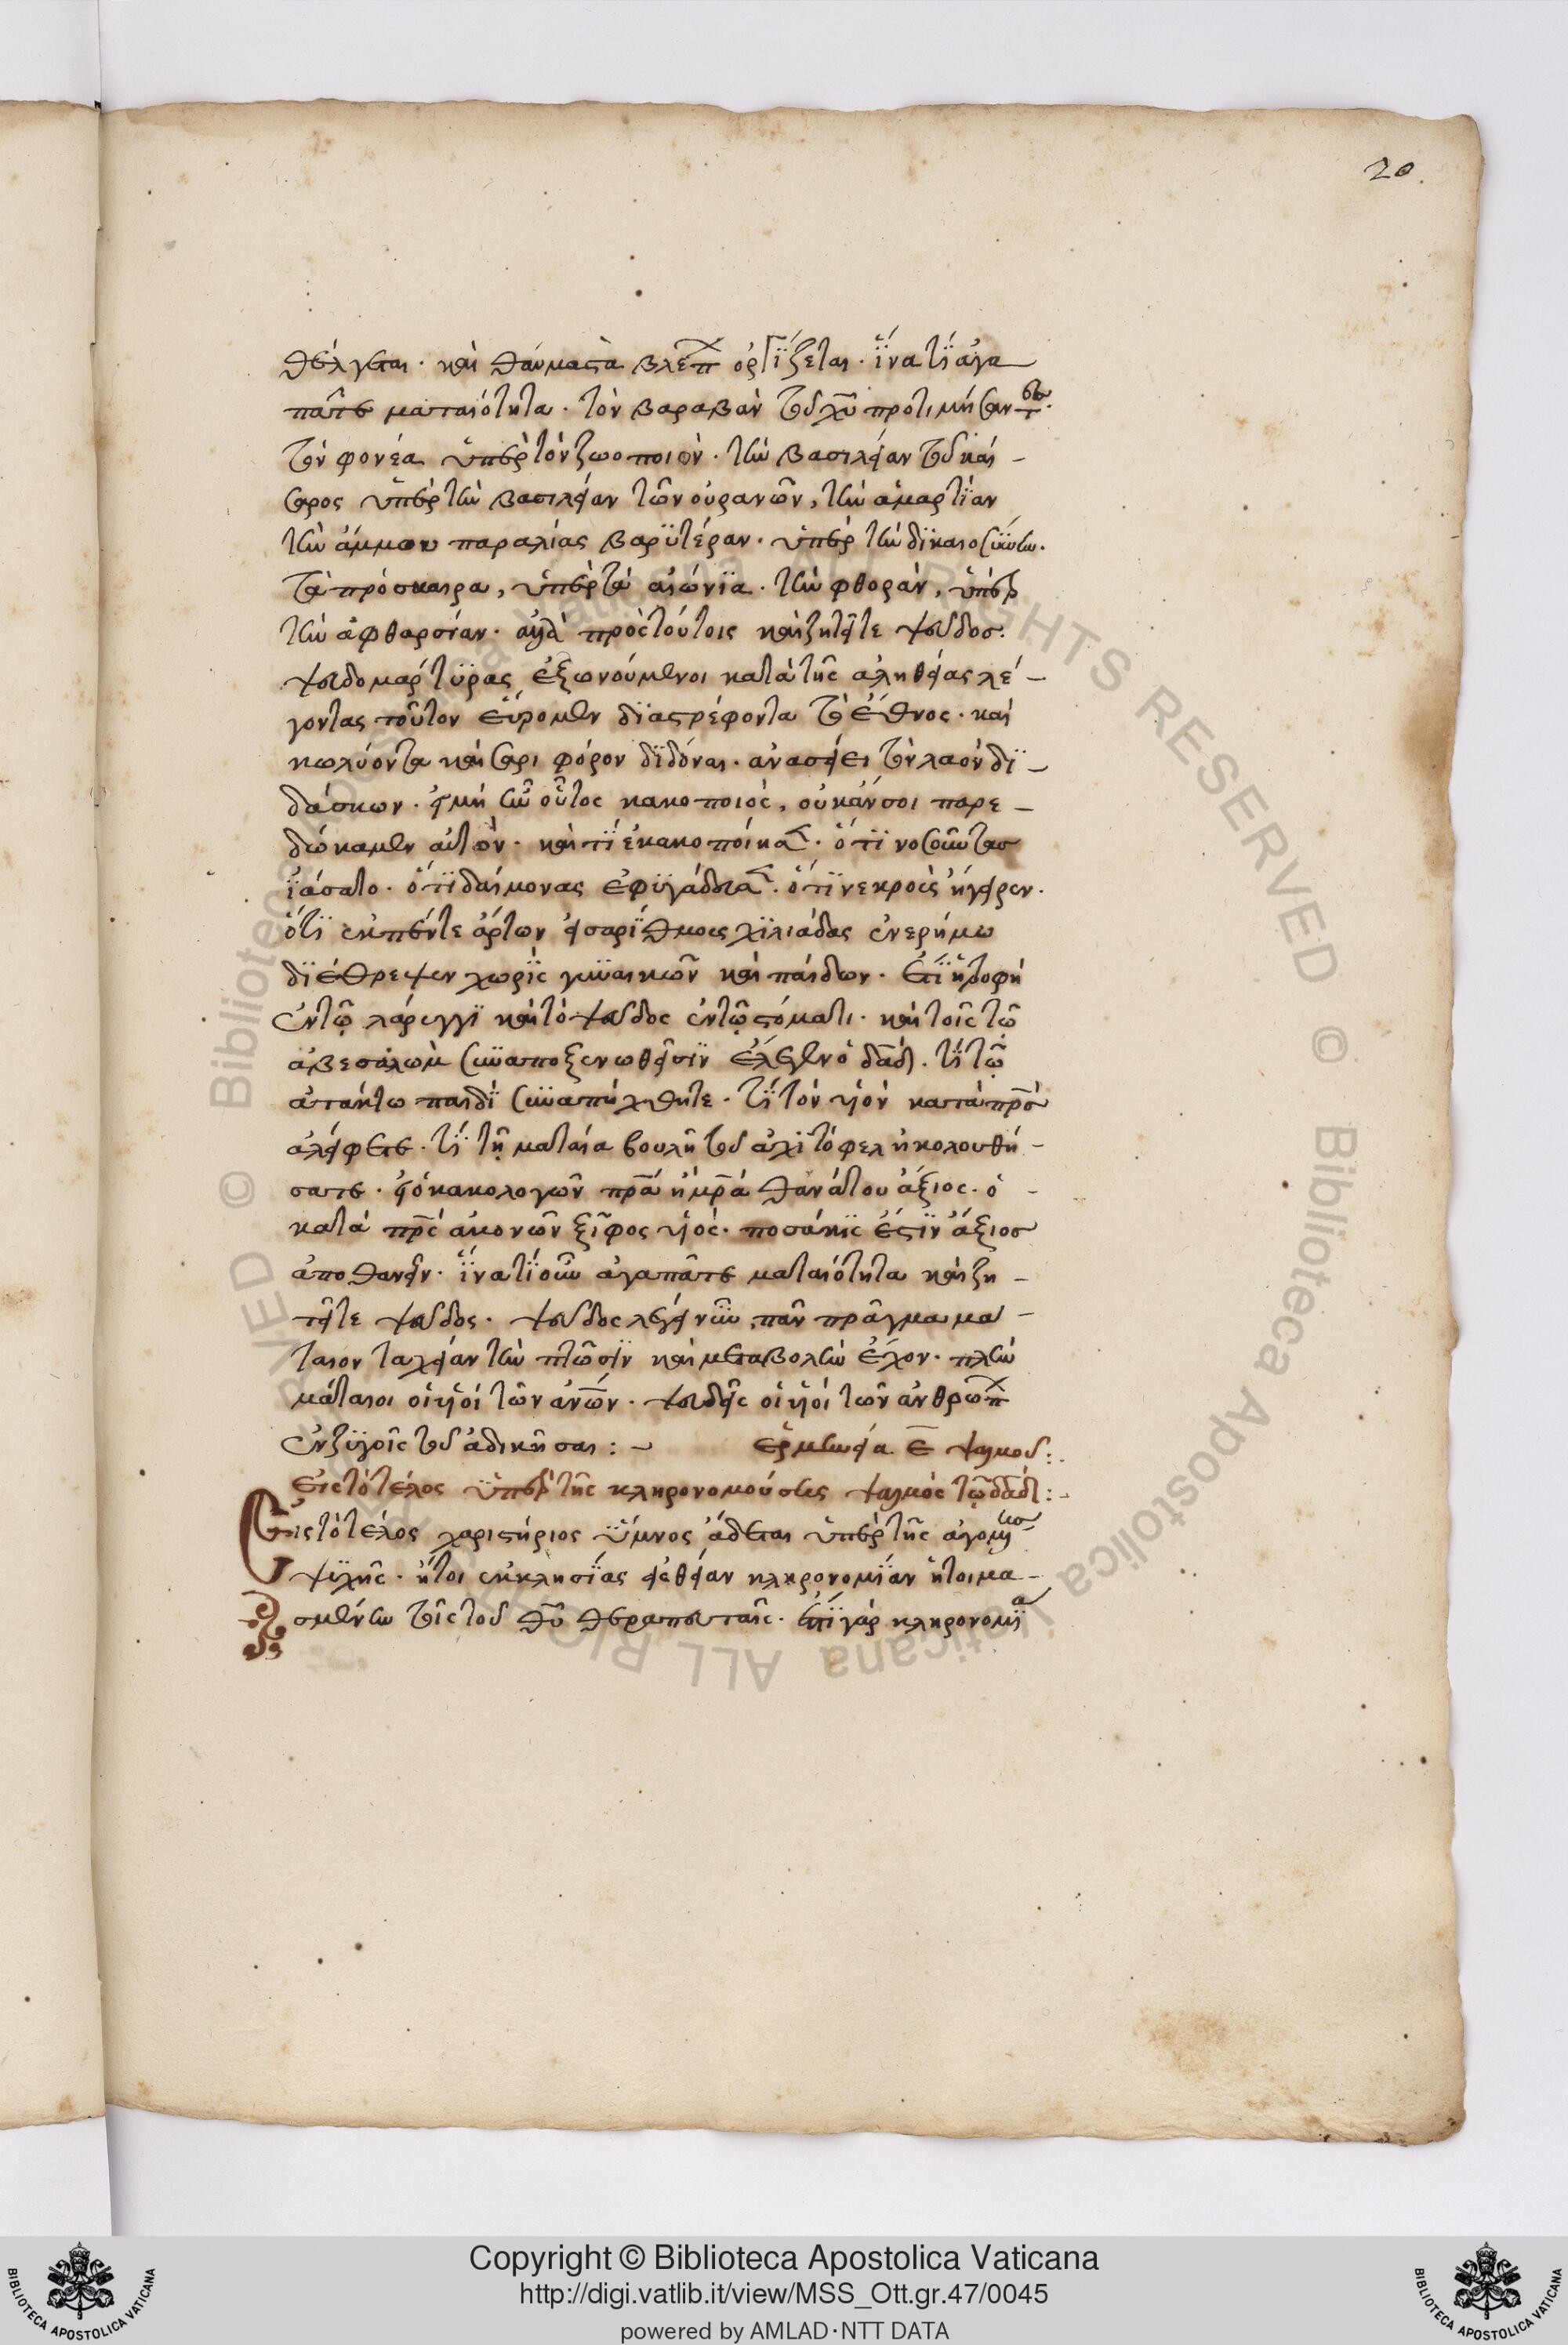 20
θέλγεται. καὶ θαύματα βλέπ ὀργϊζεται. ἵνα τί ἀγα
πᾶτε ματαιότητα. τὸν βαραβὰν τοῦ χῦ προτιμήσαντες.
τὸν φονέα ὑπὲρ τὸν ζωοποιὸν. τὴν βασιλείαν τοῦ καί –
σαρος ὑπὲρ τὴν βασιλείαν τῶν οὐρανῶν, τὴν ἁμαρτΐαν
τὴν ἄμμου παραλίας βαρϋτέραν. ὑπὲρ τὴν δϊκαιοσύνην.
τὰ πρόσκαιρα, ὑπὲρ τὰ αἰώνϊα. τὴν φθορὰν, ὑπὲρ
τὴν ἀφθαρσίαν. ἀλλὰ πρὸς τούτοις καὶ ζητεῖτε ψεῦδος.
ψευδομάρτϋρας ἐξωνούμενοι κατὰ τῆς ἀληθείας λέ –
γοντας τοῦτον εὕρομεν δϊαστρέφοντα τὸ ἔθνος. καὶ
κωλύοντα καίσαρι φόρον δϊδόναι. ἀνασείει τὸν λαὸν δϊ –
δάσκων. εἰ μὴ ἦν οὗτος κακοποιὸς, οὐκ ἄν σοι παρε –
δώκαμεν αὐτὸν. καὶ τί ἐκακοποίησ. ὅτϊ νοσοῦντας
ϊάσατο. ὅτϊ δαίμονας ἐφϋγάδευσ. ὅτϊ νεκροὺς ἤγειρεν.
ὅτϊ ἐκ πέντε ἄρτων εἰσαρΐθμους χϊλιάδας ἐν ἐρήμω
δϊέθρεψεν χωρὶς γυναικῶν καὶ παίδων. ἔτϊ ἡ τροφὴ
ἐν τῷ λάρυγγϊ καὶ τὸ ψεῦδος ἐν τῷ στόματι. καὶ τοῖς τῶ
ἀβεσαλὼμ συναποξενωθεῖσϊν ἔλεγεν ὁ δᾱδ. τί τῷ
ἀτάκτω παιδὶ συναπήχθητε. τί τὸν υἱὸν κατὰ πρσ
ἀλείφετε. τί τῇ ματαία βουλῇ τοῦ ἀχϊτόφελ ἠκολουθή –
σατε. εἰ ὁ κακολογῶν πρα ἢ μρα θανάτου ἄξιος. ὁ –
κατὰ πρς ἀκονῶν ξῖφος υἱὸς. ποσάκϊς ἐστϊν ἄξιος
ἀποθανεῖν. ἵνα τί οὖν ἀγαπᾶτε ματαιότητα καὶ ζη –
τεῖτε ψεῦδος. ψεῦδος λέγει νῦν, πᾶν πρᾶγμα μα –
ταιον ταχεῖαν τὴν πτῶσϊν καὶ μεταβολὴν ἔχον. πλὴν
μάταιοι οἱ υἱοὶ τῶν ἀνῶν. ψευδεῖς οἱ υἱοὶ τῶν ἀνθρώπ
ἐν ζϋγοῖς τοῦ ἀδικῆσαι : – ἑρμηνεία ε ψαλμοῦ :
Εἰς τὸ τέλος ὑπὲρ τῆς κληρονομούσης ψαλμὸς τῷ δᾱδ : –
Εἰς τὸ τέλος χαριστήριος ὕμνος ἄδεται ὑπὲρ τῆς
ψϋχῆς. ἤτοι ἐκκλησΐας εἰς θείαν κληρονομΐαν ἡτοιμα –
σμένην τοῖς τοῦ θῦ θεραπευταῖς. ἐπὶ γὰρ κληρονομΐα
Copyright © Biblioteca Apostolica Vaticana
http://digi.vatlib.it/view/MSS_Ott.gr.47/0045
powered by AMLAD·NTT DATA